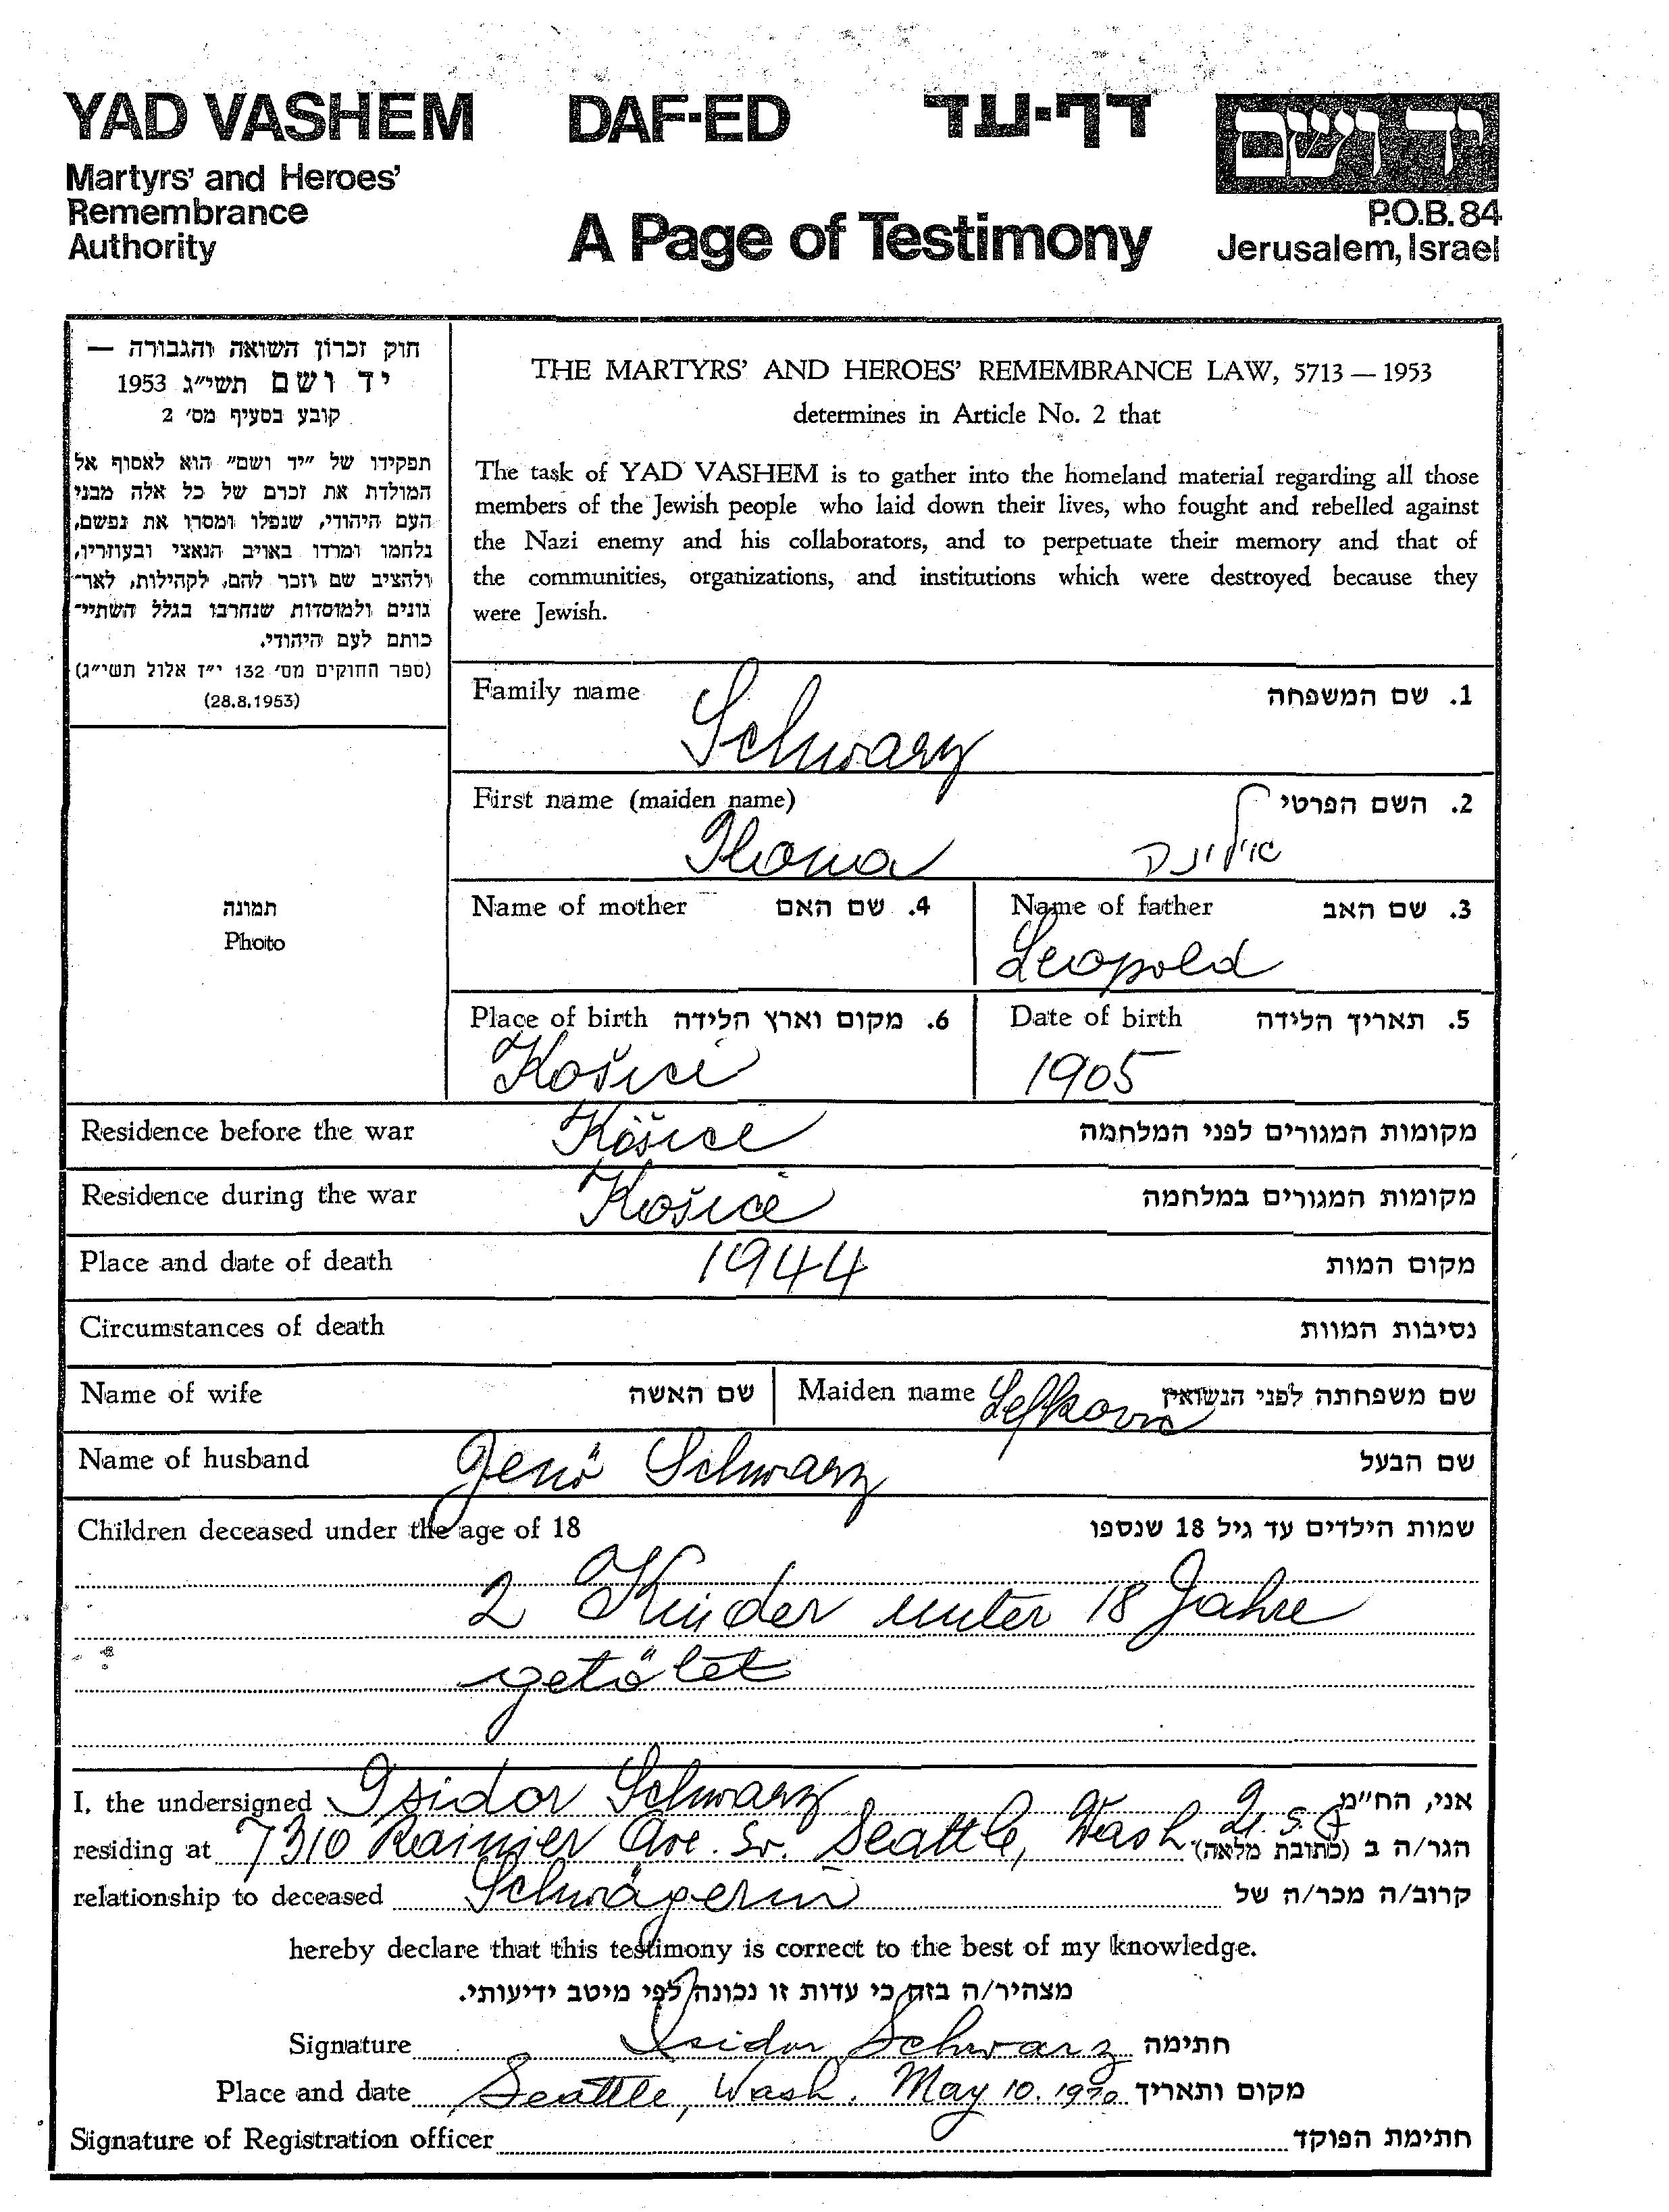 YAD VASHEM DAF-ED דף-עד יד ושם
Martyrs' and Heroes'
Remembrance
Authority
A Page of Testimony
P.O.B. 84
Jerusalem, Israel
חוק זכרון השואה והגבורה —
יד ושם תשי"ג 1953
קובע בסעיף מס' 2
תפקידו של "יד ושם" הוא לאסוף אל
המולדת את זכרם של כל אלה מבני
העם היהודי, שנפלו ומסרו את נפשם,
נלחמו ומרדו באויב הנאצי ובעוזריו,
ולהציב שם וזכר להם, לקהילות, לאר־
גונים ולמוסדות שנחרבו בגלל השתיי־
כותם לעם היהודי.
(ספר החוקים מס' 132 י"ז אלול תשי"ג)
(28.8.1953)
תמונה
Photo
THE MARTYRS' AND HEROES' REMEMBRANCE LAW, 5713 — 1953
determines in Article No. 2 that
The task of YAD VASHEM is to gather into the homeland material regarding all those
members of the Jewish people who laid down their lives, who fought and rebelled against
the Nazi enemy and his collaborators, and to perpetuate their memory and that of
the communities, organizations, and institutions which were destroyed because they
were Jewish.
Family name 1. שם המשפחה
Schwarz
First name (maiden name) 2. השם הפרטי
Ilona
Name of mother 4. שם האם
Name of father 3. שם האב
Leopold
Place of birth 6. מקום וארץ הלידה
Košice
Date of birth 5. תאריך הלידה
1905
Residence before the war Košice מקומות המגורים לפני המלחמה
Residence during the war Košice מקומות המגורים במלחמה
Place and date of death 1944 מקום המות
Circumstances of death נסיבות המוות
Name of wife שם האשה Maiden name Lefkovic שם משפחתה לפני הנשואין
Name of husband Jenö Schwarz שם הבעל
Children deceased under the age of 18 שמות הילדים עד גיל 18 שנספו
2 Kinder unter 18 Jahre
getötet
I, the undersigned Isidor Schwarz אני, הח"מ
residing at 7310 Rainier Ave. So. Seattle, Wash. U.S.A הגר/ה ב (כתובת מלאה)
relationship to deceased Schwägerin קרוב/ה מכר/ה של
hereby declare that this testimony is correct to the best of my knowledge.
מצהיר/ה בזה כי עדות זו נכונה לפי מיטב ידיעותי.
Signature Isidor Schwarz חתימה
Place and date Seattle, Wash. May 10. 1970 מקום ותאריך
Signature of Registration officer חתימת הפוקד